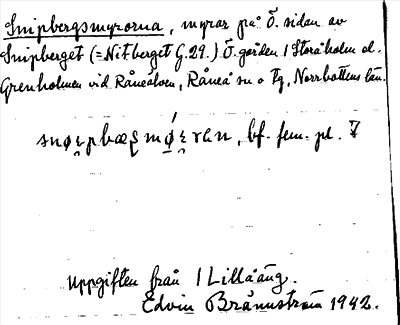 Snipbergsmyrorna, myrar på Ö. sidan av
Snipberget (= Nitberget G.29.) Ö. gården 1 Storåholm el.
Grenholmen vid Råneälven, Råneå sn o tg, Norrbottens län.
bf. fem. pl. 7
Uppgiften från 1 Lillåäng.
Edvin Brännström 1942.